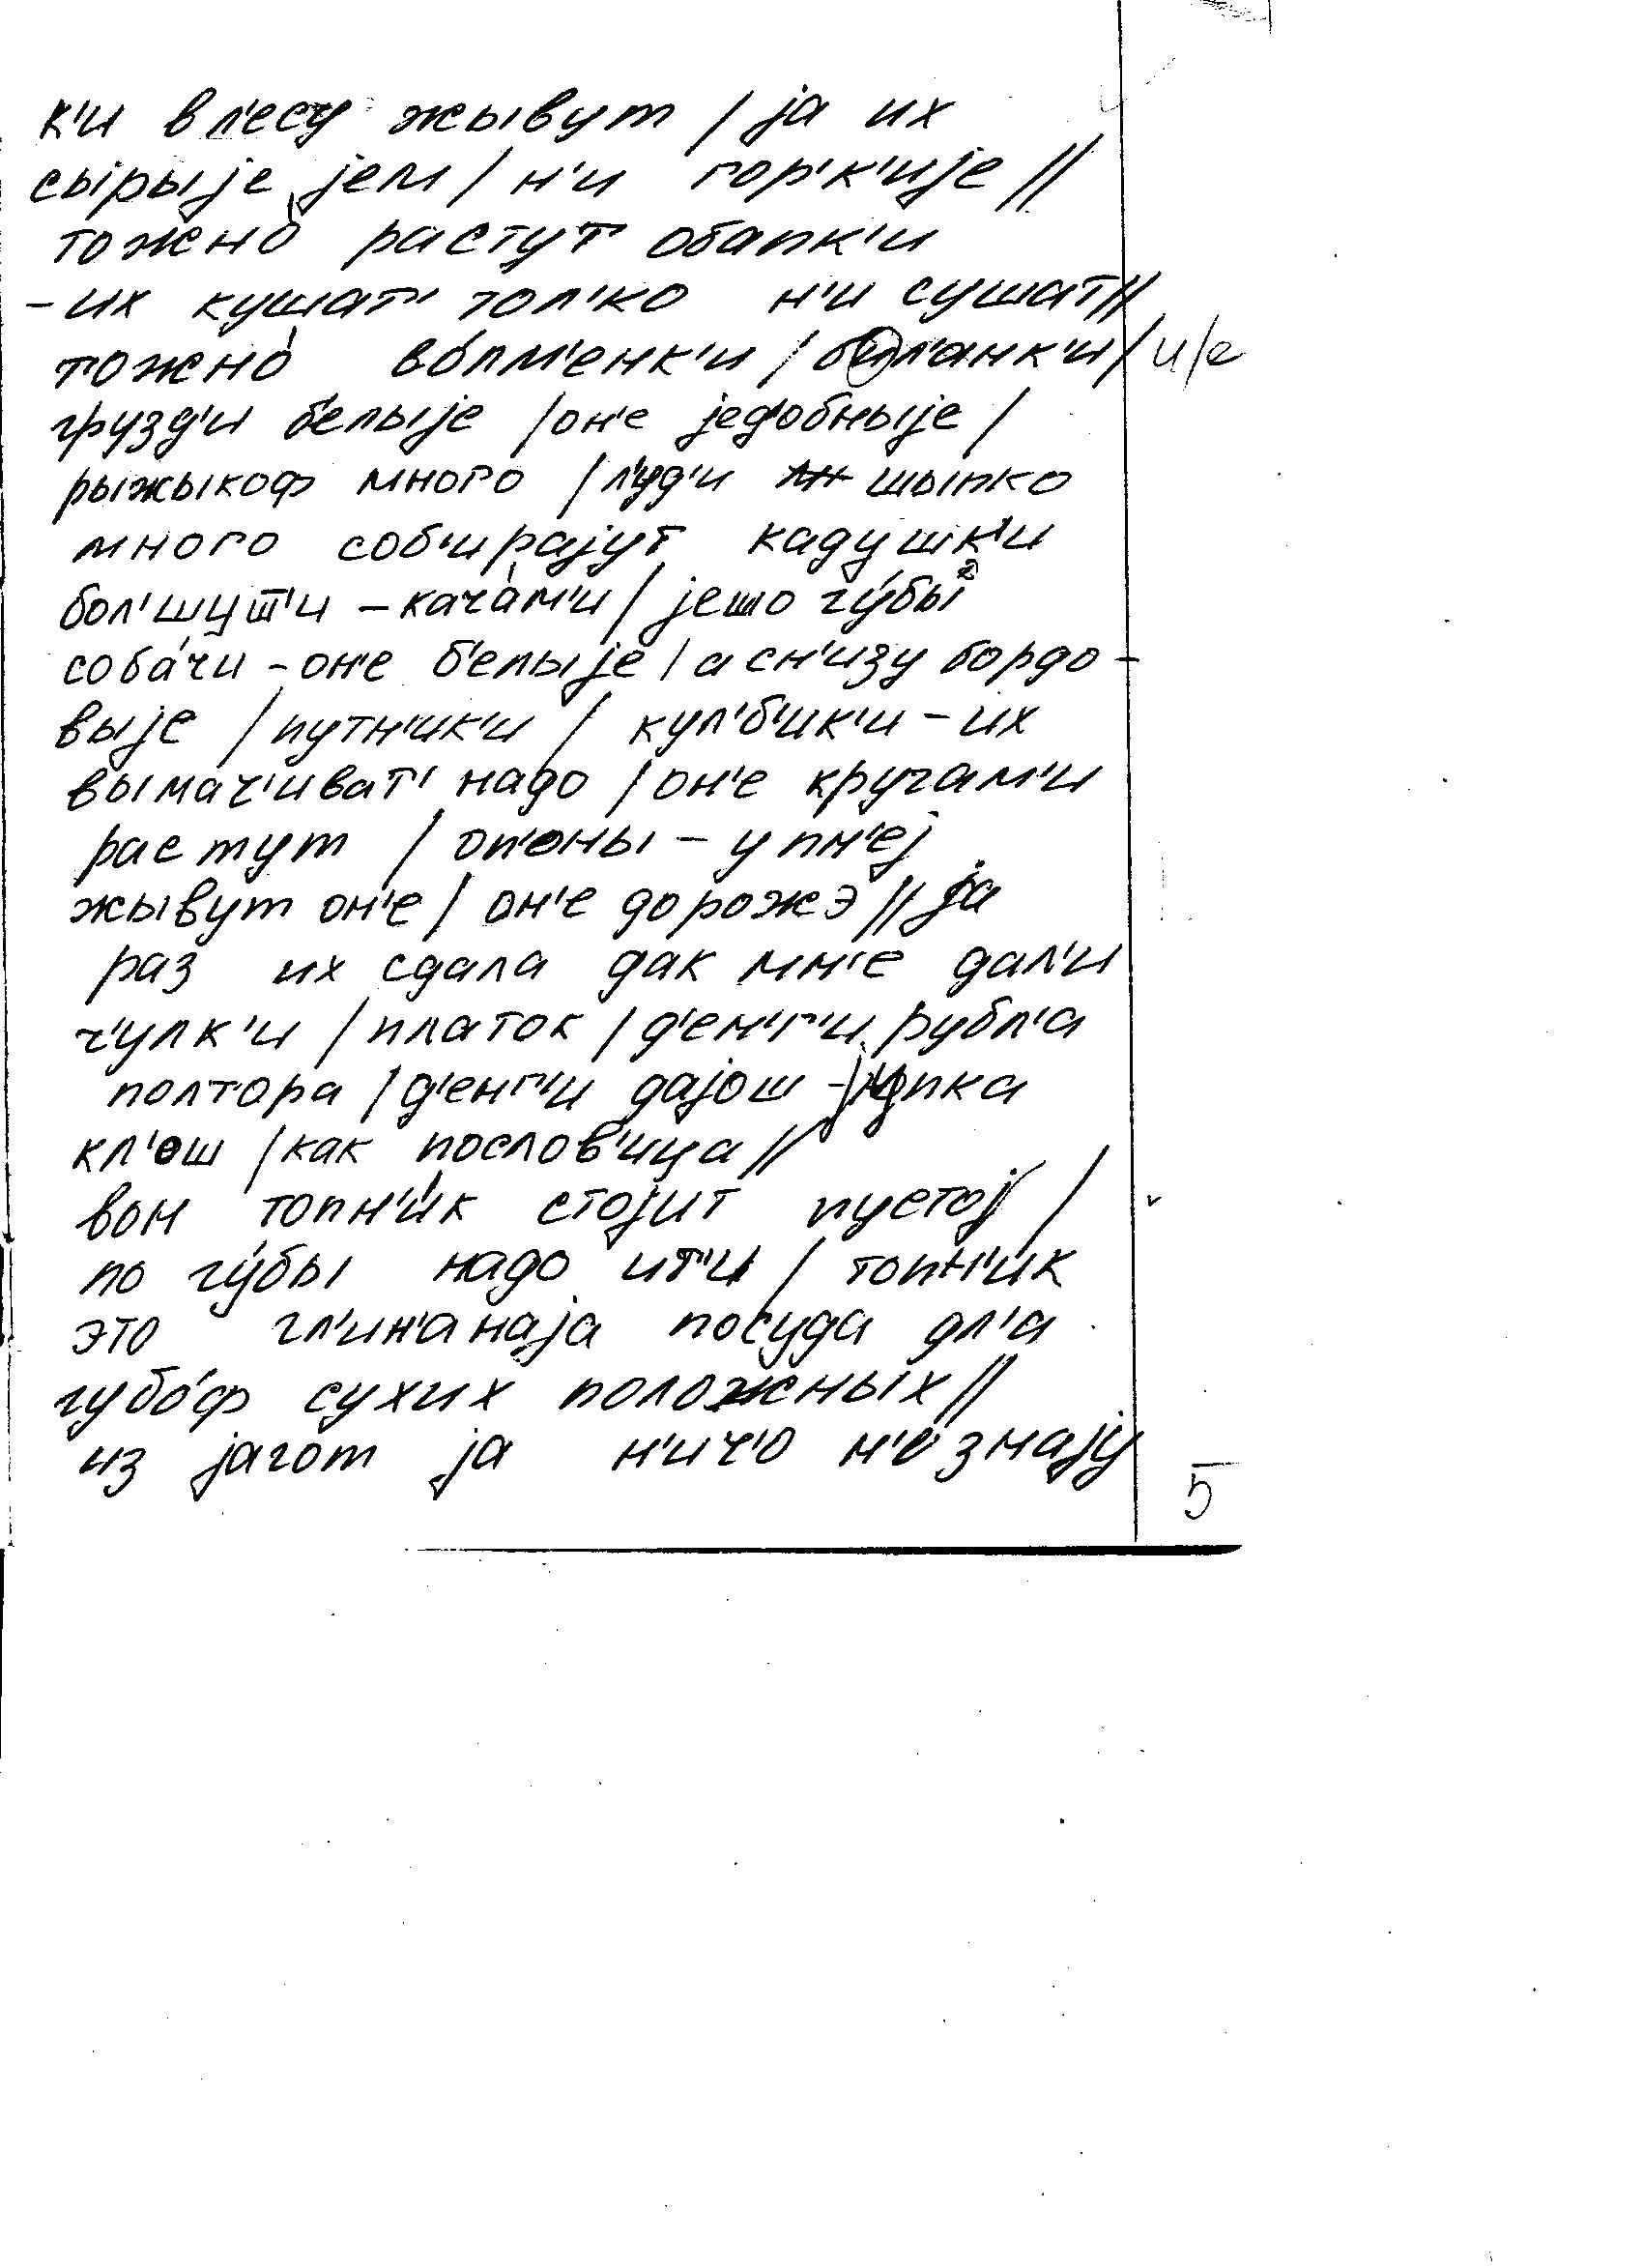 к'и в л'есу жывут / jа их
сырыје јем / н'и гор'к'ије //
тожно́ растут обапк'и
- их кушат' тол'ко н'и сушат //
тожно́ во́лм'енк'и / бил'анк'и / и/е
грузд'и б'елыје / он'е једобныје /
рыжыкоф много / л'уд'и шыпко
много соб'ирајут кадушк'и
бол'шушт'и - кача́м'и / јешо гу́бы²
соба́чи - он'е б'елыје / а сн'изу бордо-
выје / путн'ик'и / кул'б'ик'и - их
вымач'иват' надо / он'е кругам'и
растут / оп'оны - у пн'еј
жывут он'е / он'е дорожэ // ја
раз их сдала дак мн'е дал'и
ч'улк'и / платок / д'ен'г'и рубл'а
полтора / д'ен'г'и дајош - јупка
кл'ош / как послов'ица //
вон топн'и́к стојит пустој /
по гу́бы надо ит'и / топн'ик
это гл'ин'анаја посуда дл'а
губо́ф сухих положных //
из јагот ја н'ич'о н'е знају
5